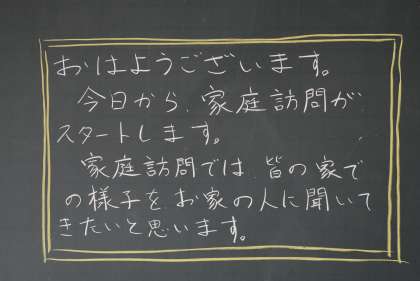 おはようございます。
今日から、家庭訪問が
スタートします。
家庭訪問では、皆の家で
の様子をお家の人に聞いて
きたいと思います。